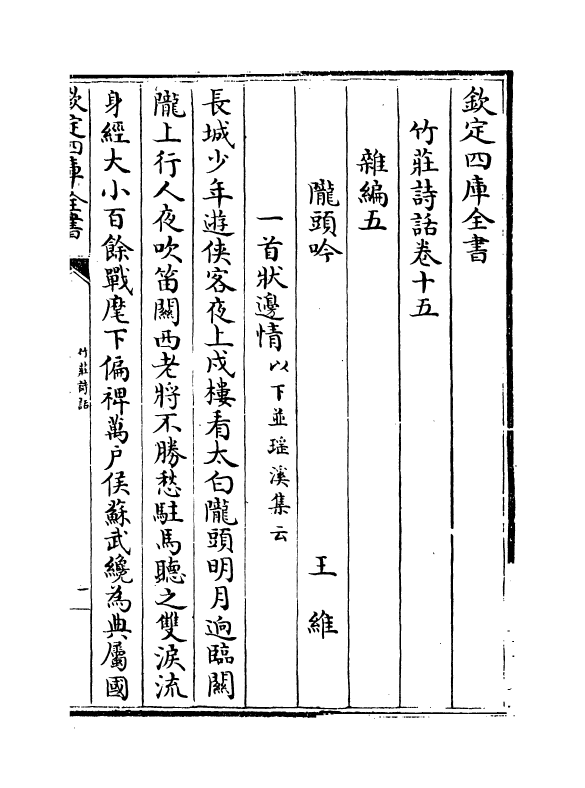 欽定四庫全書
竹莊詩話卷十五
雜編五
隴頭吟　王維
一首狀邊情以下並瑶溪集云
長城少年遊俠客夜上戍樓看太白隴頭明月逈臨關
隴上行人夜吹笛關西老將不勝愁駐馬聽之雙淚流
身經大小百餘戰麾下偏裨萬户侯蘇武纔為典屬國
欽定四庫全書
竹莊詩話
一